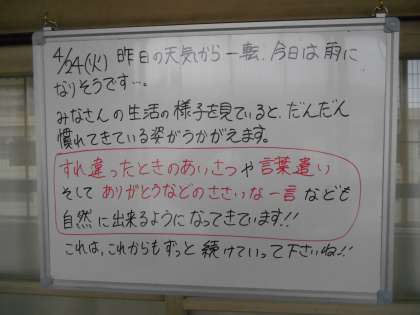 4/24(火) 昨日の天気から一転、今日は雨に
なりそうです…。
みなさんの生活の様子を見ていると、だんだん
慣れてきている姿がうかがえます。
すれ違ったときのあいさつや言葉遣い
そして ありがとうなどのささいな一言なども
自然に出来るようになってきています!!
これは、これからもずっと続けていって下さいね!!